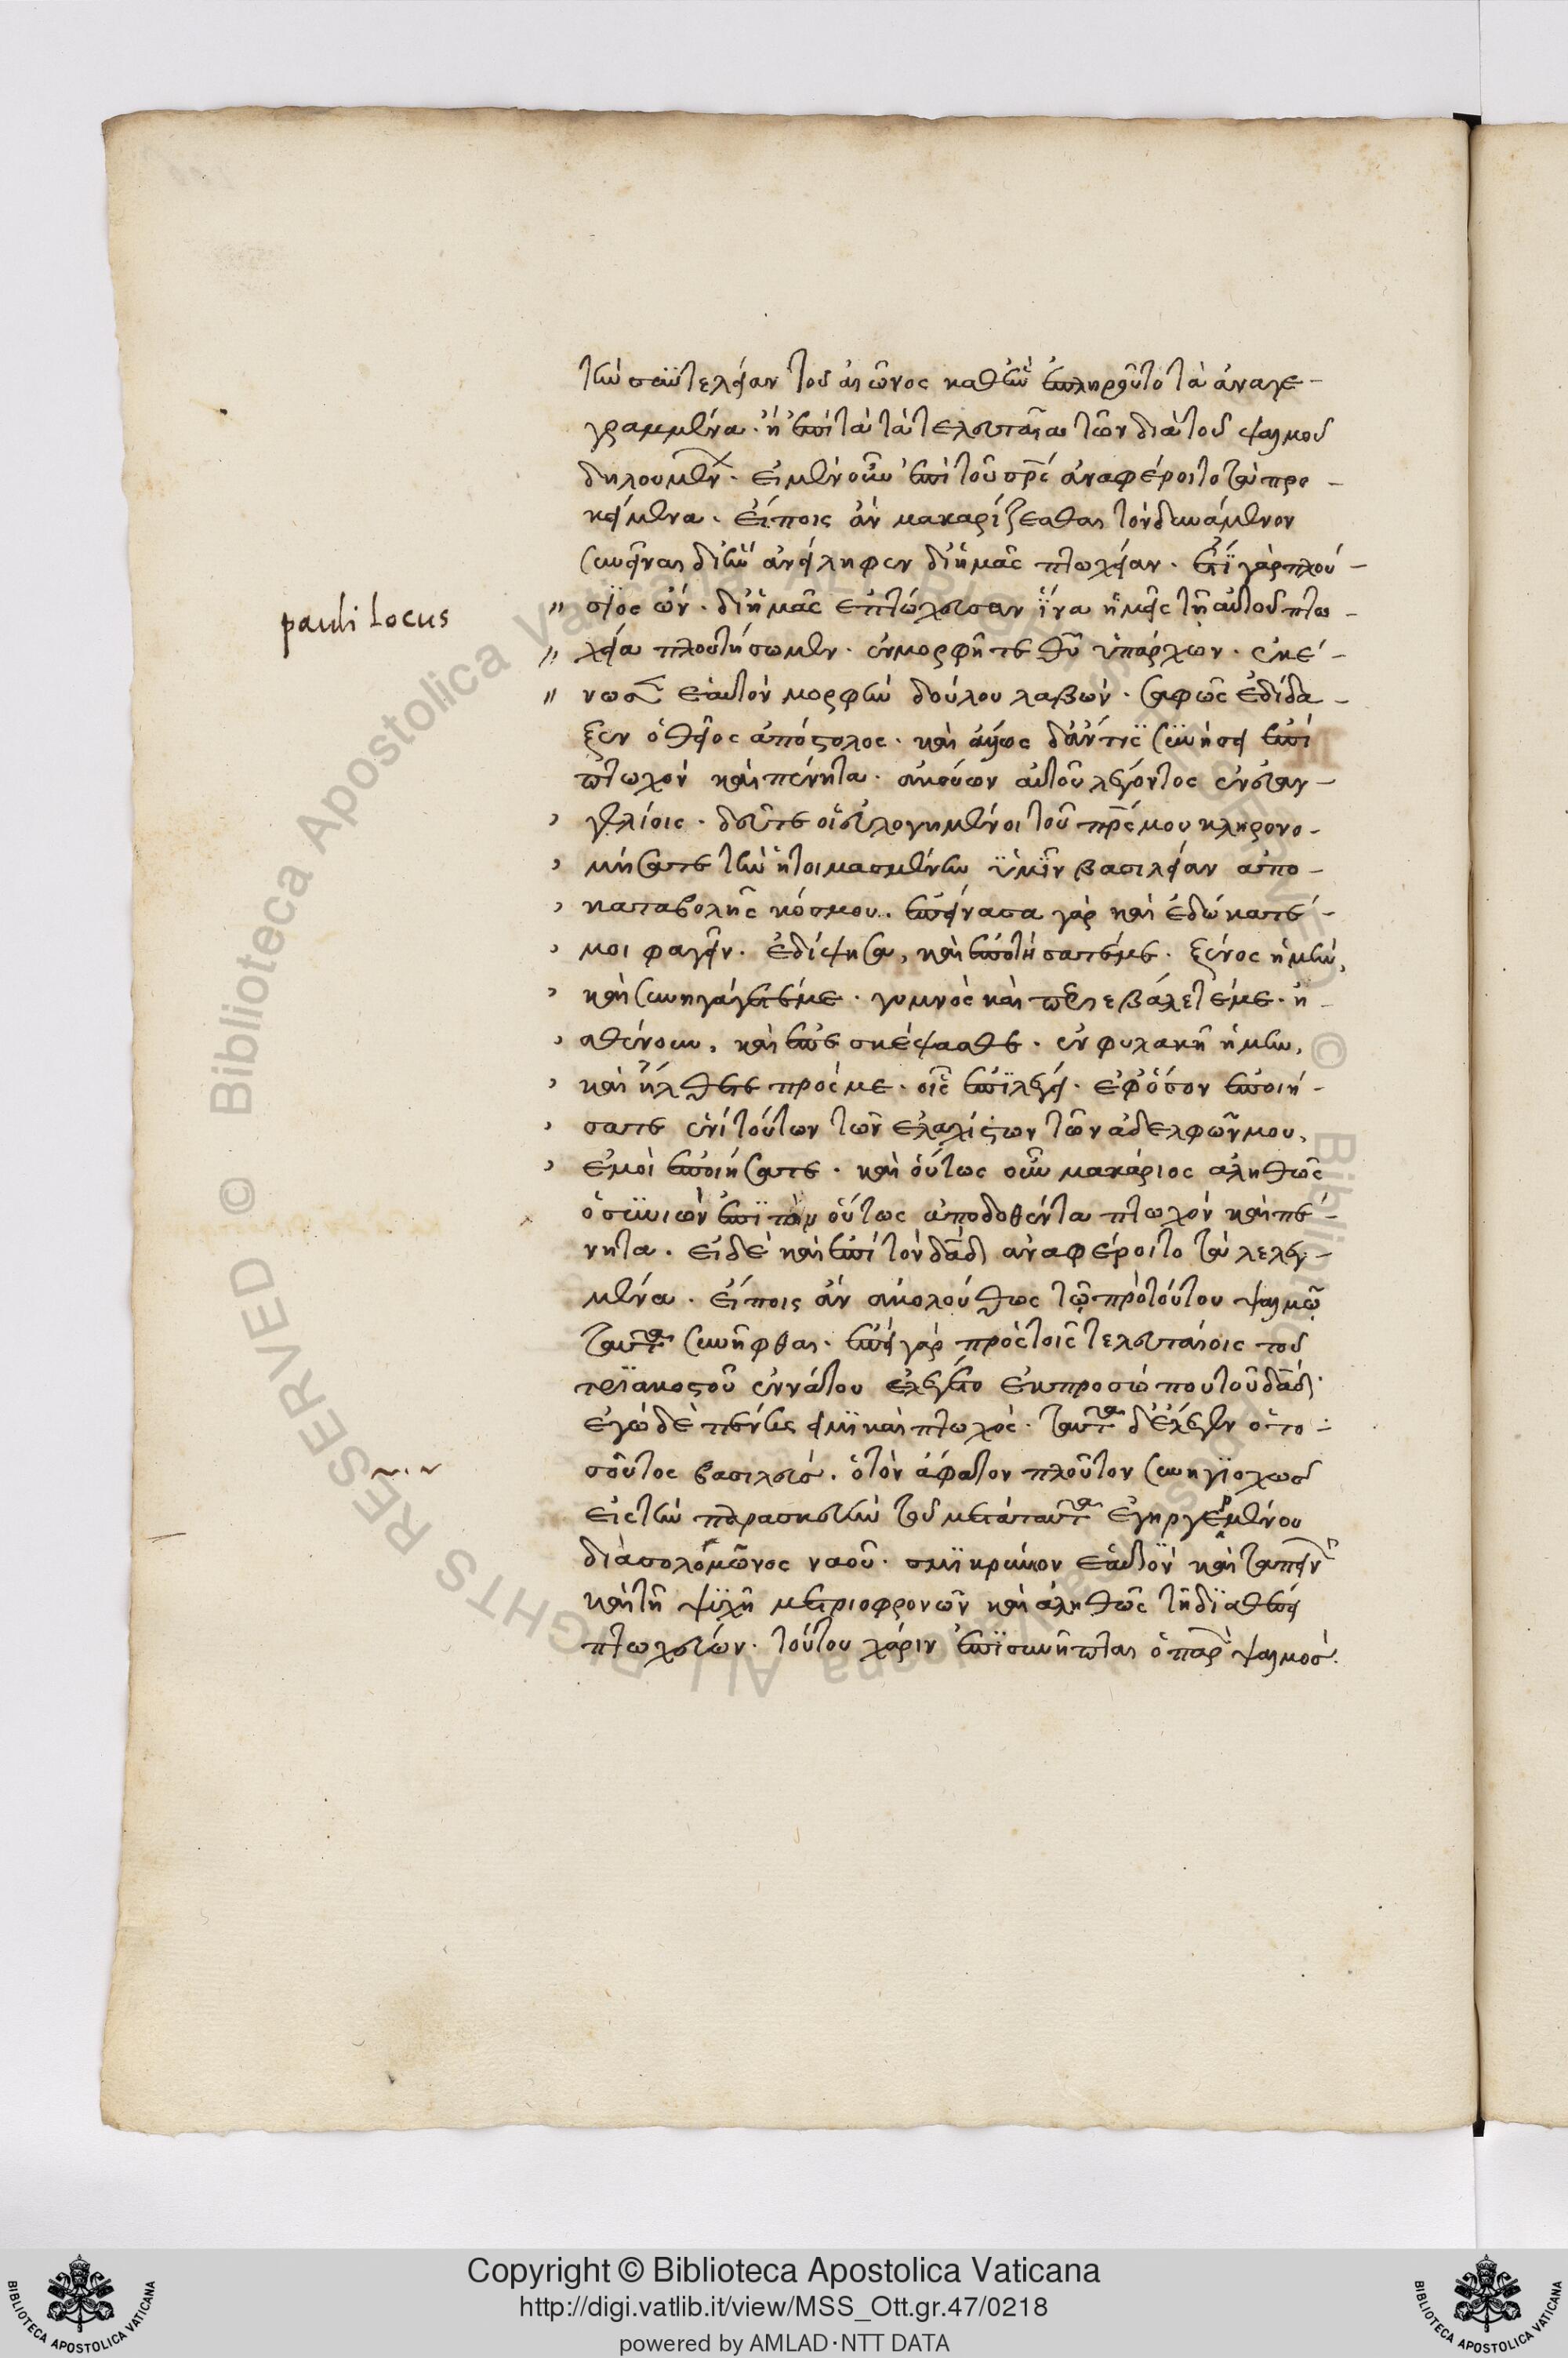 τὴν συντέλειαν τοῦ αἰῶνος καθ' ἣν ἐπληροῦτο τὰ ἀναγε-
γραμμένα. ἢ ἐπὶ τὰ τελευταῖα τῶν διὰ τοῦ ψαλμοῦ
δηλουμένων. εἰ μὲν οὖν ἐπὶ τοῦ σρς ἀναφέροιτο τὰ προ-
κείμενα. εἴποις ἂν μακαρίζεσθαι τὸν δυνάμενον
συνεῖναι δι' ἣν ἀνείληφεν δι' ἡμᾶς πτωχείαν. ὅτι γὰρ πλού-
pauli locus
σιος ὤν. δι' ἡμᾶς ἐπτώχευσεν ἵνα ἡμεῖς τῇ αὐτοῦ πτω-
χεία πλουτήσωμεν. ἐν μορφῇ τε θυ ὑπάρχων. ἐκέ-
νωσεν ἑαυτὸν μορφὴν δούλου λαβών. σαφῶς ἐδίδα-
ξεν ὁ θεῖος ἀπόστολος. καὶ
πτωχὸν καὶ πένητα. ἀκούων αὐτοῦ λέγοντος ἐν εὐαγ-
γελίοις. δεῦτε οἱ εὐλογημένοι τοῦ πρς μου κληρονο-
μήσατε τὴν ἡτοιμασμένην ὑμῖν βασιλείαν ἀπὸ
καταβολῆς κόσμου. ἐπείνασα γὰρ καὶ ἐδώκατέ
μοι φαγεῖν. ἐδίψησα, καὶ ἐποτίσατέ με. ξένος ἤμην,
καὶ συνηγάγετέ με. γυμνὸς καὶ περιεβάλετέ με. ἠ-
σθένουν, καὶ ἐπεσκέψασθε. ἐν φυλακῇ ἤμην,
καὶ ἤλθετε πρός με. οἷς ἐπιλέγει. ἐφ' ὅσον ἐποιή-
σατε ἑνὶ τούτων τῶν ἐλαχίστων τῶν ἀδελφῶν μου,
ἐμοὶ ἐποιήσατε. καὶ οὕτως οὖν μακάριος ἀληθῶς
ὁ συνιὼν ἐπὶ τὸν οὕτως ἀποδοθέντα πτωχὸν καὶ πέ-
νητα. εἰ δὲ καὶ ἐπὶ τὸν δαδ ἀναφέροιτο τὰ λελεγ-
μένα. εἴποις ἂν ἀκολούθως τῷ πρὸ τούτου ψαλμῷ
ταῦτα συνῆφθαι. ἐπεὶ γὰρ πρὸς τοῖς τελευταίοις τοῦ
τριακοστοῦ ἐννάτου ἐλέγετο ἐκ προσώπου τοῦ δαδ.
ἐγὼ δὲ πένης εἰμὶ καὶ πτωχός. ταῦτα δὲ ἔλεγεν ὁ το-
σοῦτος βασιλεύς. ὁ τὸν ἄφατον πλοῦτον συνηγιοχὼς
εἰς τὴν παρασκευὴν τοῦ μετὰ ταῦτα ἐγηργερμένου
διὰ σολομῶνος ναοῦ. σμικρύνων ἑαυτὸν καὶ ταπεινῶν
καὶ τῇ ψυχῇ μετριοφρονῶν καὶ ἀληθῶς τῇ διαθέσει
πτωχεύων. τούτου χάριν ἐπισυνῆπται ὁ παρὼν ψαλμός.
Copyright © Biblioteca Apostolica Vaticana
http://digi.vatlib.it/view/MSS_Ott.gr.47/0218
powered by AMLAD·NTT DATA